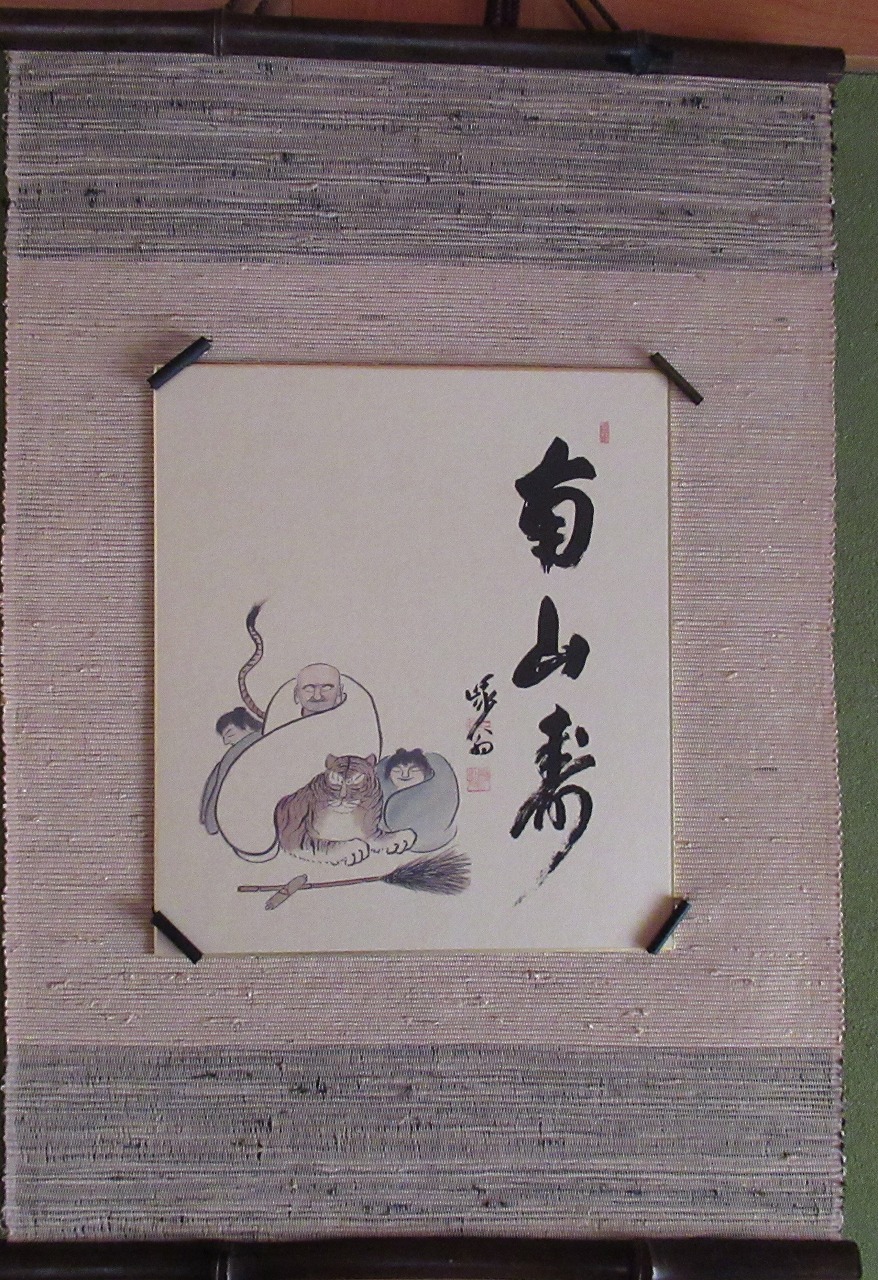 南山寿